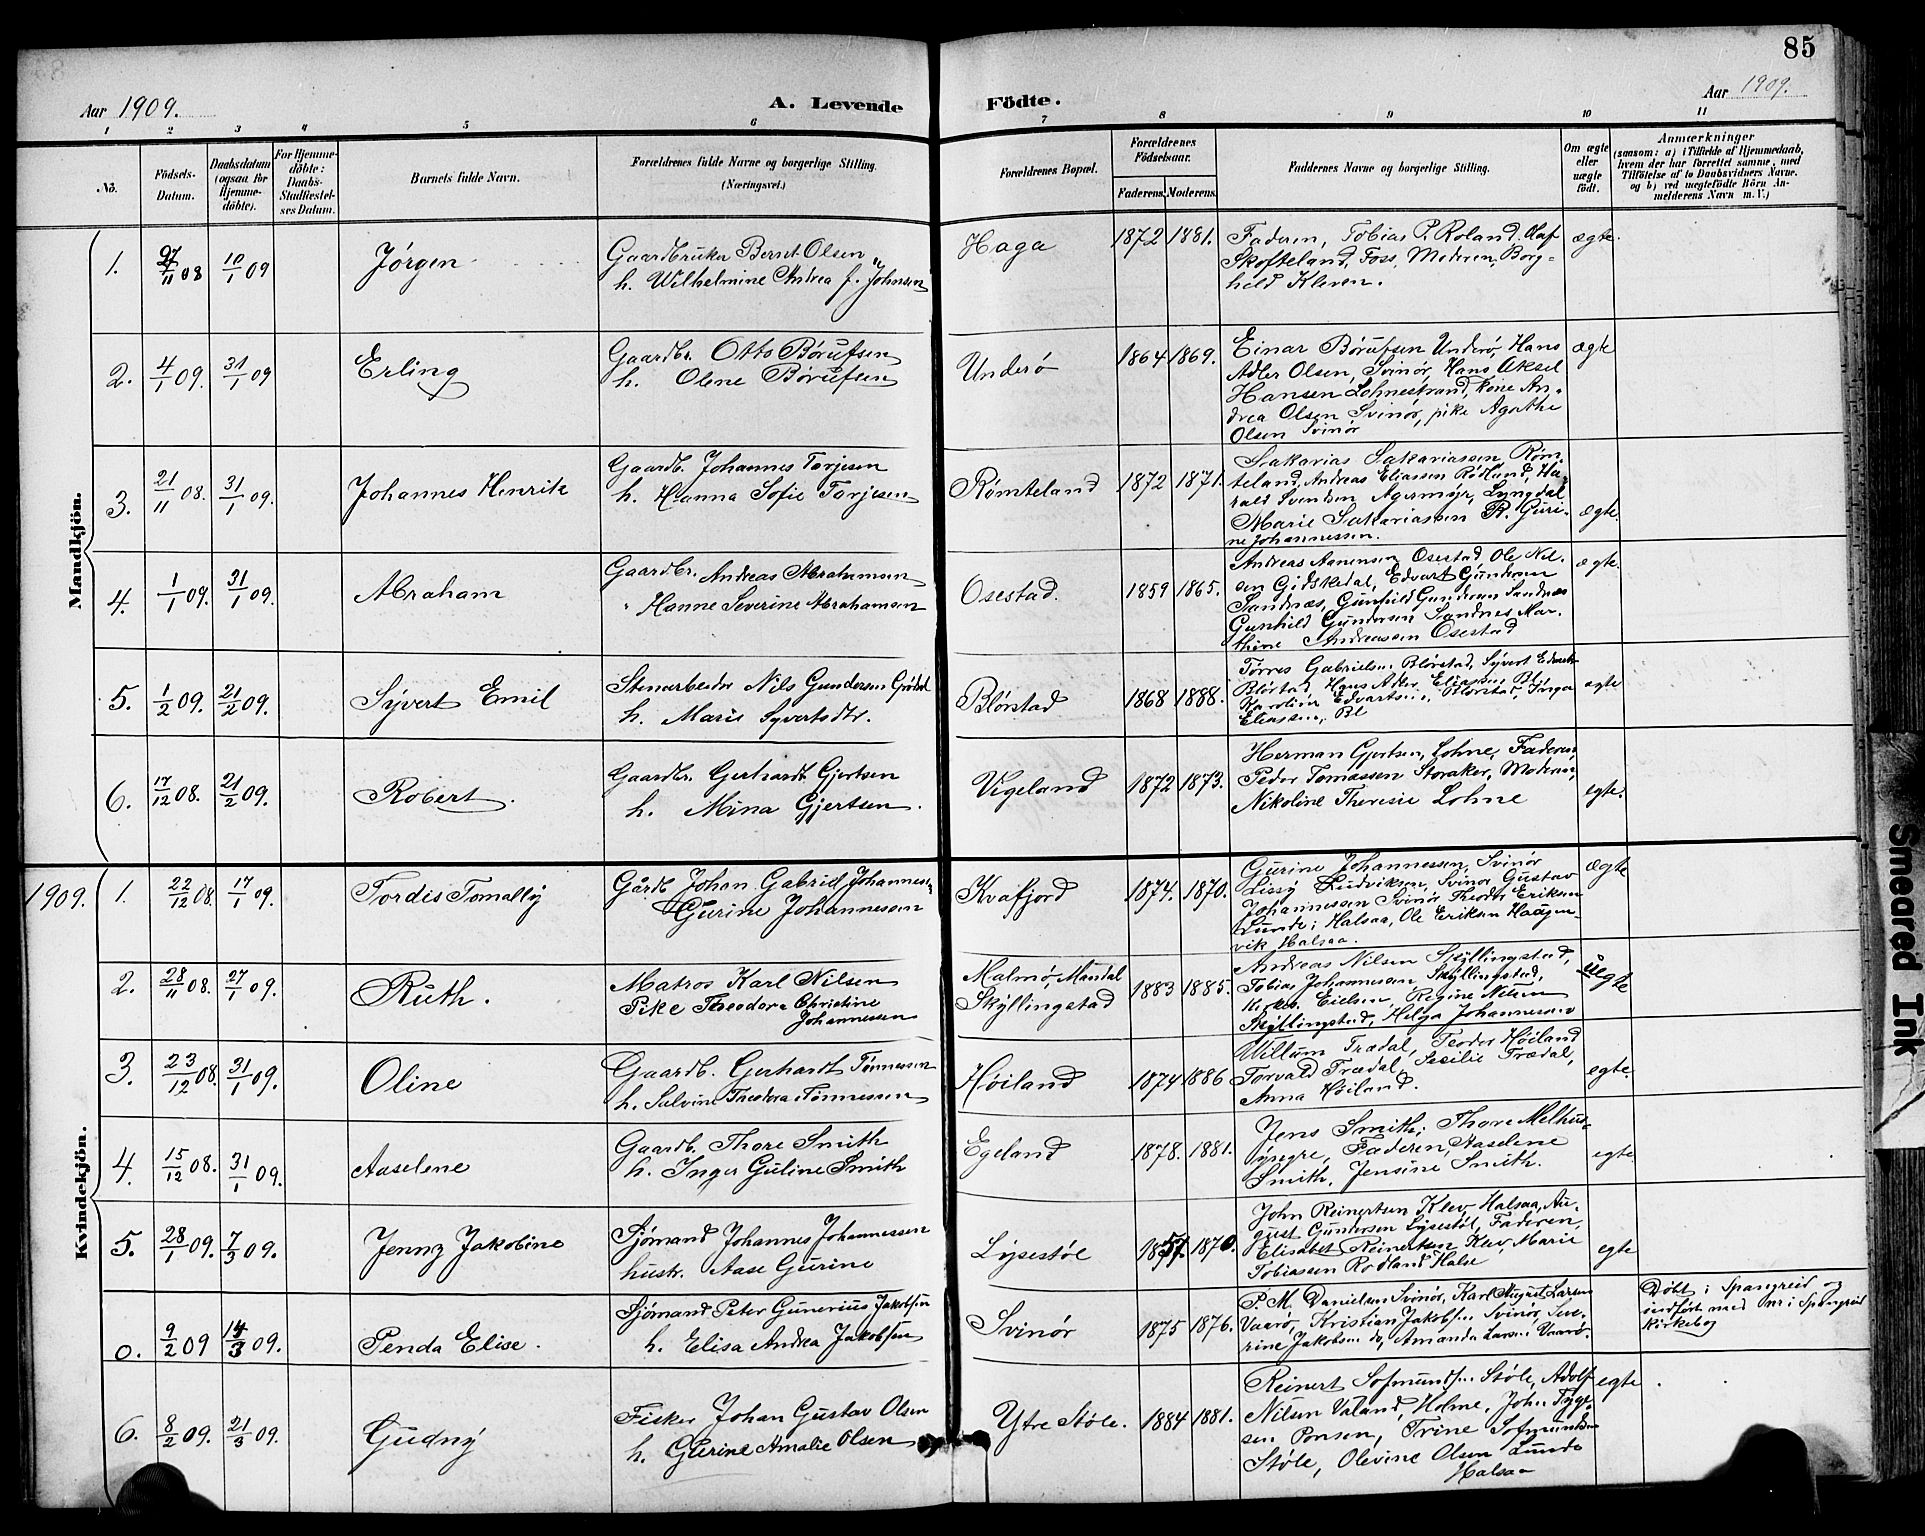 85
Aar 1909. A. Levende Födte. Aar 1909.
1 2 3 4 5 6 7 8 9 10 11
No. Födsels-Datum. Daabsdatum (ogsaa for Hjemme-döbte). For Hjemme-döbte: Daabs-Stadfæstel-ses Datum. Barnets fulde Navn. Forældrenes fulde Navne og borgerlige Stilling. (Næringsvei.) Forældrenes Bopæl. Forældrenes Födselsaar. Faderens. Moderens. Faddernes Navne og borgerlige Stilling. Om ægte eller uægte födt. Anmærkninger
(saasom: a) i Tilfælde af Hjemmedaab, hvem der har forrettet samme, med Tilföielse af to Daabsvidners Navne, og b) ved uægtefödte Börn An-melderens Navn m. V.)
Mandkjön.
1. 27/11 08 10/1 09 Jørgen Gaardbruker Bernt Olsen
h. Wilhelmine Andrea f. Johnsen
Haga 1872 1881. Faderen, Tobias P. Roland. Olaf
Skofteland, Foss, Moderen, Borg-
hild Kleven.
ægte.
2. 4/1 09. 31/1 09 Erling Gaardbr. Otto Børufsen
h. Olene Børufsen
Underø 1864 1869. Einar Børufsen Underø, Hans
Adler Olsen, Svinør, Hans Aksel
Hansen Lohnestrand, Kone An-
drea Olsen Svinør, pike Agathe
Olsen Svinør
ægte
3. 21/11 08. 31/1 09. Johannes Henrik Gaardb. Johannes Torjesen
h. Hanna Sofie Torjesen
Rømteland 1872 1871. Sakarias Sakariassen Røm-
teland, Andreas Eliassen Rødlund, Ha-
rald Svendsen Agersmyr, Lyngdal
Marie Sakariassen R. Guri-
ne Johannessen.
ægte.
4. 1/1 09. 31/1 09. Abraham Gaardbr. Andreas Abrahamsen
" Hanne Severine Abrahamsen
Osestad. 1859 1865. Andreas Aanensen Osestad, Ole Nil-
sen Gidskedal, Edvart Gundersen
Sandnæs, Gunhild Gundersen Sandnæs
Gunhild Gundersen Sandnes Mar-
thine Andreassen Osestad
ægte.
5. 1/2 09. 21/2 09. Syvert Emil Stenarbeider Nils Gundersen
h. Marie Syvertsdtr.
Blørstad 1868 1888. Tørres Gabrielsen Blørstad, Syvert Edvarts
Blørstad, Hans Adler Eliassen Bl
Karoline Edvartsen, Blørstad, Inga
Eliassen, Bl
egte
6. 17/12 08. 21/2 09. Robert. Gaardbr. Gerhardt Gjertsen
h. Mina Gjertsen.
Vigeland 1872 1873. Herman Gjertsen, Lohne, Faderen
Peder Tomassen Storaker, Moderen,
Nikoline Theresie Lohne
egte.
Kvindekjön.
1909. 1. 22/12 08. 17/1 09. Tordis Tomally Gårdb. Johan Gabriel Johannessen
Gurine Johannessen
Kvafjord 1874. 1870. Gurine Johannessen, Svinør
Lissy Ludviksen, Svinør Gustav
Johannessen Svinør Theodor Eriksen
Lunde i Halsaa, Ole Eriksen Haagen-
vik Halsaa.
ægte
2. 28/11 08. 27/1 09. Ruth. Matros Karl Nilsen
Pike Theodora Christine
Johannessen
Malmø, Mandal
Skyllingstad
1883 1885. Andreas Nilsen Skyllingstad,
Tobias Johannessen Skyllingstad,
Eielsen, Regine Nilsen
Skyllingstad, Helga Johannessen
uegte
3. 23/12 08. 31/1 09. Oline Gaardb. Gerhardt Tønnessen
h. Salvine Theodora Tønnessen
Høiland 1874 1886 Willum Trædal, Teodor Høiland
Torvald Trædal, Secilie Trædal,
Anna Høiland.
egte.
4. 15/12 08. 31/1 09. Aaselene Gaardb. Thore Smith
h. Inger Guline Smith
Egeland 1878. 1881. Jens Smith, Thore Melhus-
Faderen, Aaselene
Smith, Jensine Smith.
egte
5. 28/1 09. 7/3 09. Jenny Jakobine Sjømand Johannes Johannessen
hustr. Aase Gurine
Lysestøl 1857. 1870. John Reinertsen Klev Halsaa, Au-
gust Gundersen Lysestøl, Faderen,
Elisabet Reinertsen Klev, Marie
Tobiassen Rødland Halse
egte
0. 9/2 09 14/3 09. Penda Elise. Sjømand Peter Gunerius Jakobsen
h. Elisa Andrea Jakobsen
Svinør 1875 1876. P. M. Danielsen Svinør, Karl August Larsen
Vaarø, Kristian Jakobsen Svinør, Seve-
rine Jakobsen do, Amanda Larsen Vaarø.
Døbt i Spangreid og
indført med nr i Spangreid
kirkebog
6. 8/2 09. 21/3 09. Gudny Fisker Johan Gustav Olsen
h. Gurine Amalie Olsen
Ytre Støle. 1884 1881. Reinert Sofmundsen Støle, Adolf
Nilsen Valand, Holme, John Tygt-
sen Ponsen, Trine Sofmundsen
Støle, Olevine Olsen Lunde
Halsaa
egte
Smeared Ink